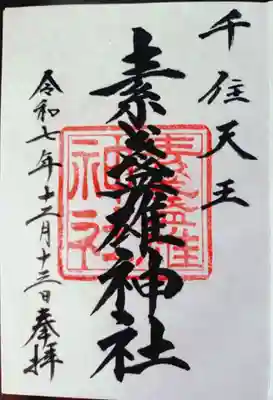 千住天王
素盞雄神社
令和七年十二月十三日奉拝